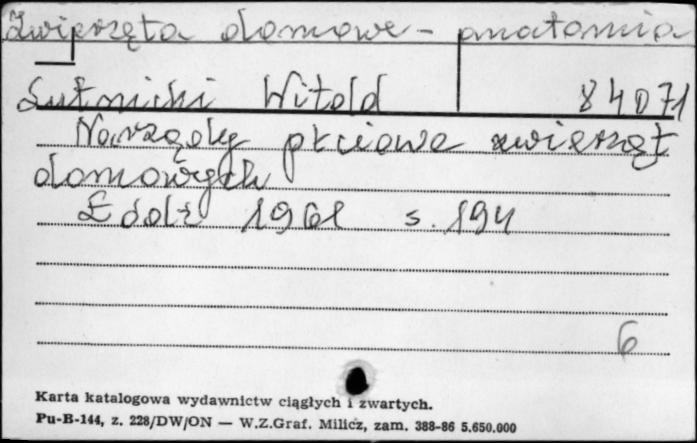 Zwierzęta domowe - anatomia
Lutnicki Witold 84071
Narządy płciowe zwierząt
domowych
Łódź 1961 s. 194
6
Karta katalogowa wydawnictw ciągłych i zwartych.
Pu-B-144, z. 228/DW/ON — W.Z.Graf. Milicz, zam. 388-86 5.650.000